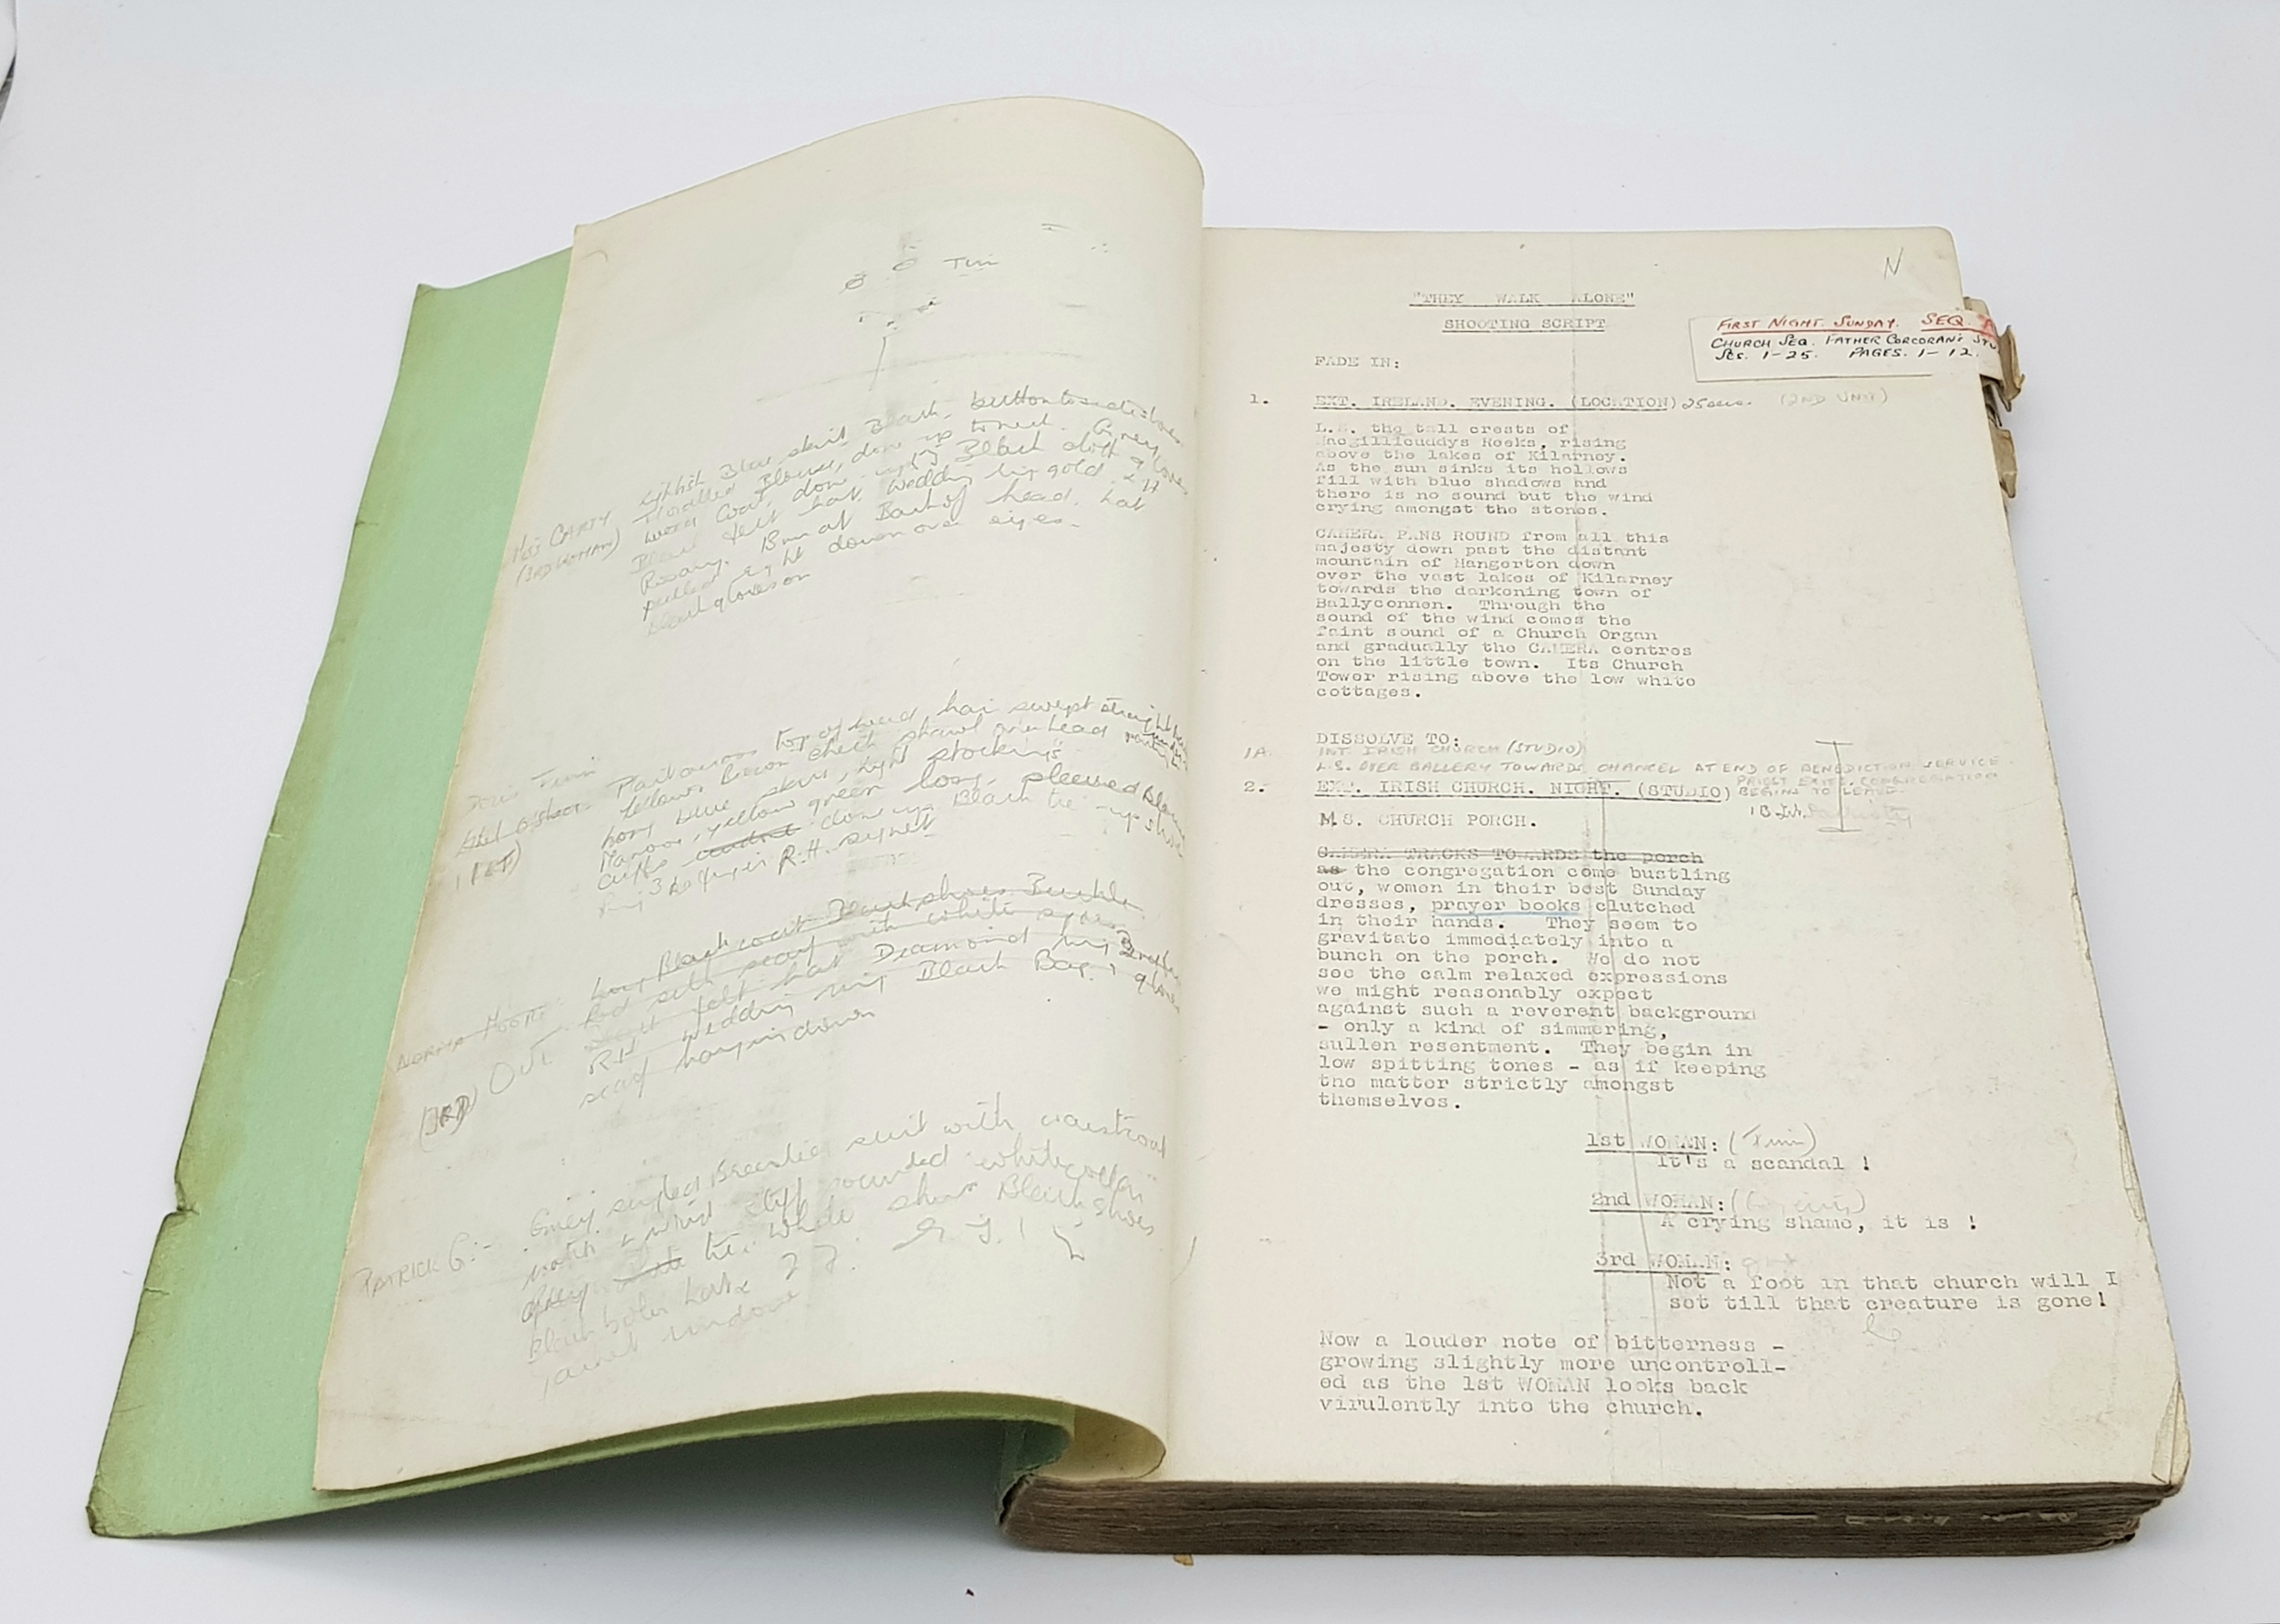 Tim
Mrs CARTY
(3RD WOMAN)
Blue skirt Black
Blouse, done up to neck. Grey
worn Coat, done up Black cloth
Black felt hat, wedding ring gold
Rosary. Bun at Back of head. hat
pulled right down over eyes.
Black gloves on
Parting on top of head, hair swept straight
Yellow Brown check shawl over head
long blue skirt, light stockings
Maroon, yellow green long sleeved Blouse
cuffs undone done up. Black tie-up shoes
3rd finger R.H. signet
(1ST)
Long Black coat Black shoes Buckle
Red silk scarf with white spots
Black felt hat Diamond ring 3rd
RH wedding ring Black Bag
scarf hanging down
NORMA
(3RD) OUT
PATRICK G:-
Grey single Breasted suit with waistcoat
stiff rounded white collar
tie. White shirt Black shoes
jacket undone
N
"THEY WALK ALONE"
SHOOTING SCRIPT
FIRST NIGHT. SUNDAY. SEQ. A
CHURCH SEQ. FATHER CORCORAN'S
SCS. 1-25. PAGES. 1-12.
FADE IN:
1. EXT. IRELAND. EVENING. (LOCATION) 25secs. (2ND UNIT)
L.S. the tall crests of
Macgillicuddys Reeks, rising
above the lakes of Kilarney.
As the sun sinks its hollows
fill with blue shadows and
there is no sound but the wind
crying amongst the stones.
CAMERA PANS ROUND from all this
majesty down past the distant
mountain of Mangerton down
over the vast lakes of Kilarney
towards the darkening town of
Ballyconnen. Through the
sound of the wind comes the
faint sound of a Church Organ
and gradually the CAMERA centres
on the little town. Its Church
Tower rising above the low white
cottages.
DISSOLVE TO:
1A. INT. IRISH CHURCH (STUDIO)
L.S. OVER GALLERY TOWARDS CHANCEL AT END OF BENEDICTION SERVICE.
PRIEST EXITS. CONGREGATION
BEGINS TO LEAVE.
2. EXT. IRISH CHURCH. NIGHT. (STUDIO)
M.S. CHURCH PORCH.
CAMERA TRACKS TOWARDS the porch
as the congregation come bustling
out, women in their best Sunday
dresses, prayer books clutched
in their hands. They seem to
gravitate immediately into a
bunch on the porch. We do not
see the calm relaxed expressions
we might reasonably expect
against such a reverent background
- only a kind of simmering,
sullen resentment. They begin in
low spitting tones - as if keeping
the matter strictly amongst
themselves.
1st WOMAN:
It's a scandal !
2nd WOMAN:
A crying shame, it is !
3rd WOMAN:
Not a foot in that church will I
set till that creature is gone!
Now a louder note of bitterness -
growing slightly more uncontroll-
ed as the 1st WOMAN looks back
virulently into the church.